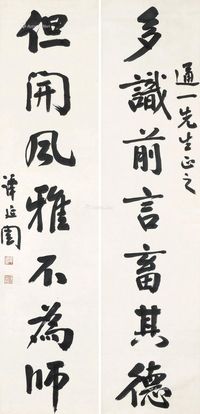 通一先生正之
多識前言畜其德
但開風雅不為師
譚延闓